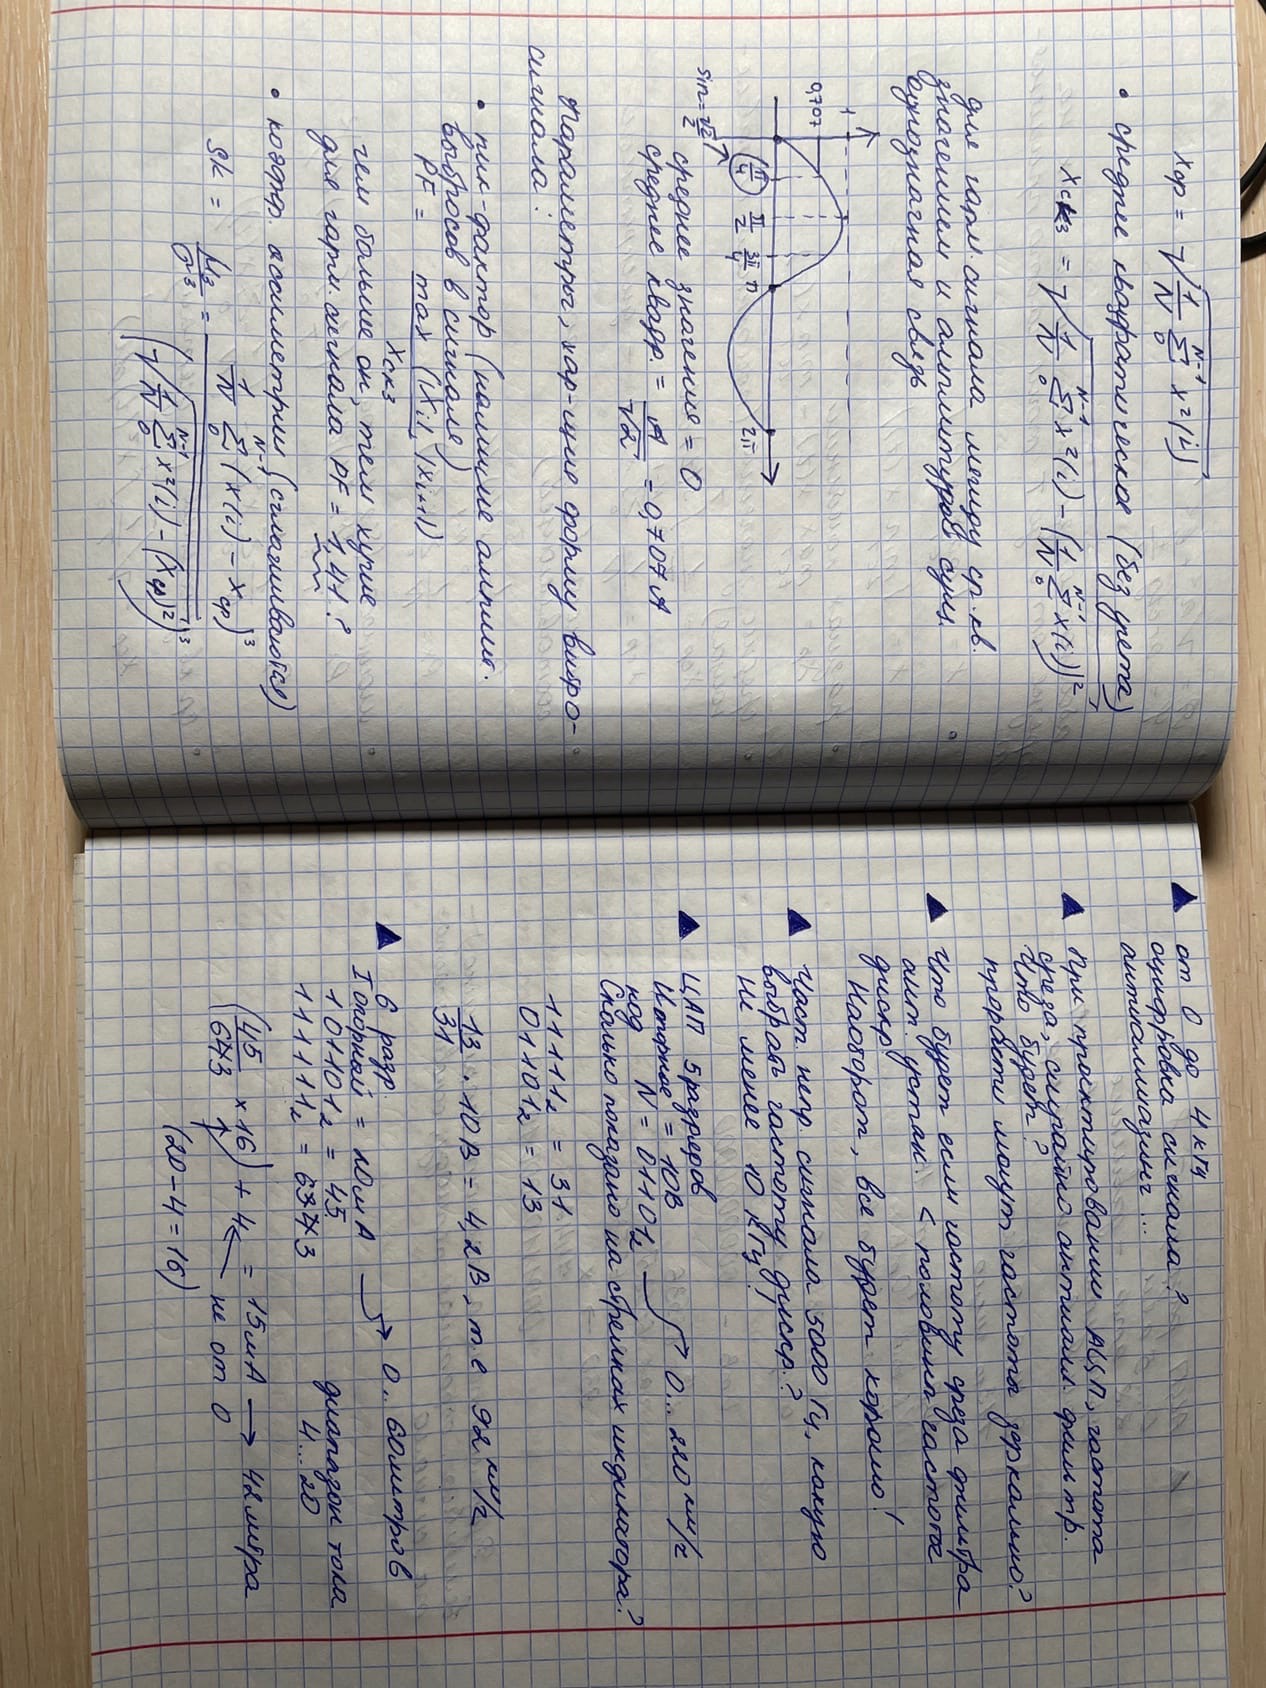 xср = √(1/N Σ₀ᴺ⁻¹ x²(i))
• среднее квадратическое (без учета)
xскз = √(1/N Σ₀ᴺ⁻¹ x²(i) − (1/N Σ₀ᴺ⁻¹ x(i))²)
для гарм. сигнала между ср. кв.
значением и амплитудой сущ.
однозначная связь
1
0,707
π/4 π/2 3π/4 π 2π
sin = √2/2
среднее значение = 0
среднее квадр. = A/√2 = 0,707 A
Параметры, хар-щие форму вибро-
сигнала:
• пик-фактор (наличие амплит.
выбросов в сигнале)
PF = max (|Xi|, |xi+1|) / xскз
чем больше он, тем хуже
для гарм. сигнала PF = 1,41 ?
• коэфф. ассиметрии (сглаживаются)
SK = μ₃/σ³ = (1/N Σ₀ᴺ⁻¹ (x(i) − xср)³) / (√(1/N Σ₀ᴺ⁻¹ x²(i) − (xср)²))³
▲ от 0 до 4 кГц
оцифровка сигнала?
антиаллиазинг...
▲ При проктировании АЦП, частота
среза, случайно антиалл. фильтр.
Что будет?
прорасти могут частоты зеркально?
▲ Что будет если частоту среза фильтра
ант. устан. < половины частоты
дискр.
Наоборот, все будет хорошо!
▲ Част. непр. сигнала 5000 Гц, какую
выбрать частоту дискр.?
Не менее 10 кГц!
▲ ЦАП 5 разрядов
Uопорное = 10В
код N = 01101₂ → 0... 220 км/ч
Сколько показано на стрелках индикатора?
11111₂ = 31
01101₂ = 13
13/31 · 10В = 4,2В, т.е 92 км/ч
▲ 6 разр.
Iопорный = 20мА → 0.. 60литров
101101₂ = 45 диапазон тока
111111₂ = 63 4...20
(45/63 × 16) + 4 = 15мА → 42 литра
не от 0
(20−4=16)